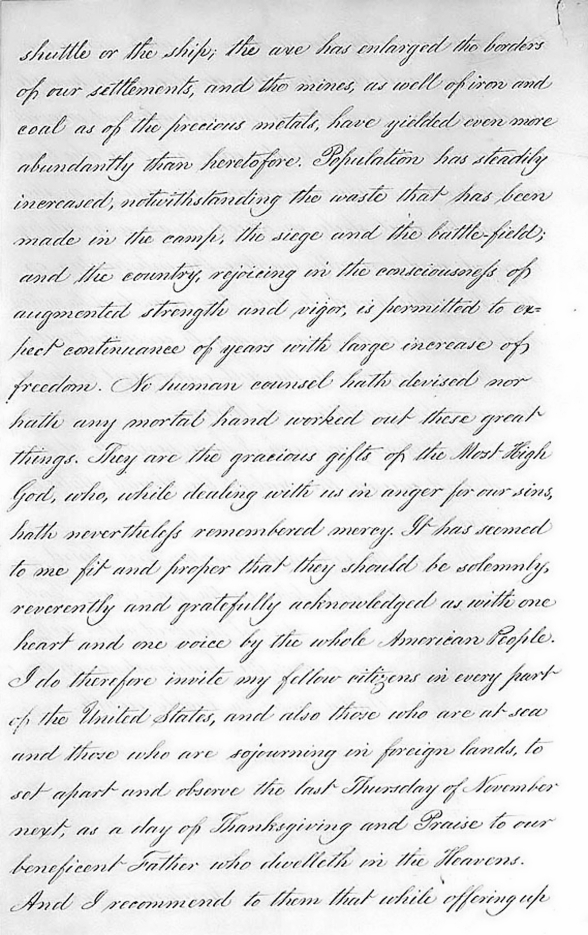 shuttle or the ship; the axe has enlarged the borders
of our settlements, and the mines, as well of iron and
coal as of the precious metals, have yielded even more
abundantly than heretofore. Population has steadily
increased, notwithstanding the waste that has been
made in the camp, the siege and the battle-field;
and the country, rejoicing in the consciousness of
augmented strength and vigor, is permitted to ex=
pect continuance of years with large increase of
freedom. No human counsel hath devised nor
hath any mortal hand worked out these great
things. They are the gracious gifts of the Most High
God, who, while dealing with us in anger for our sins,
hath nevertheless remembered mercy. It has seemed
to me fit and proper that they should be solemnly,
reverently and gratefully acknowledged as with one
heart and one voice by the whole American People.
I do therefore invite my fellow citizens in every part
of the United States, and also those who are at sea
and those who are sojourning in foreign lands, to
set apart and observe the last Thursday of November
next, as a day of Thanksgiving and Praise to our
beneficent Father who dwelleth in the Heavens.
And I recommend to them that while offering up